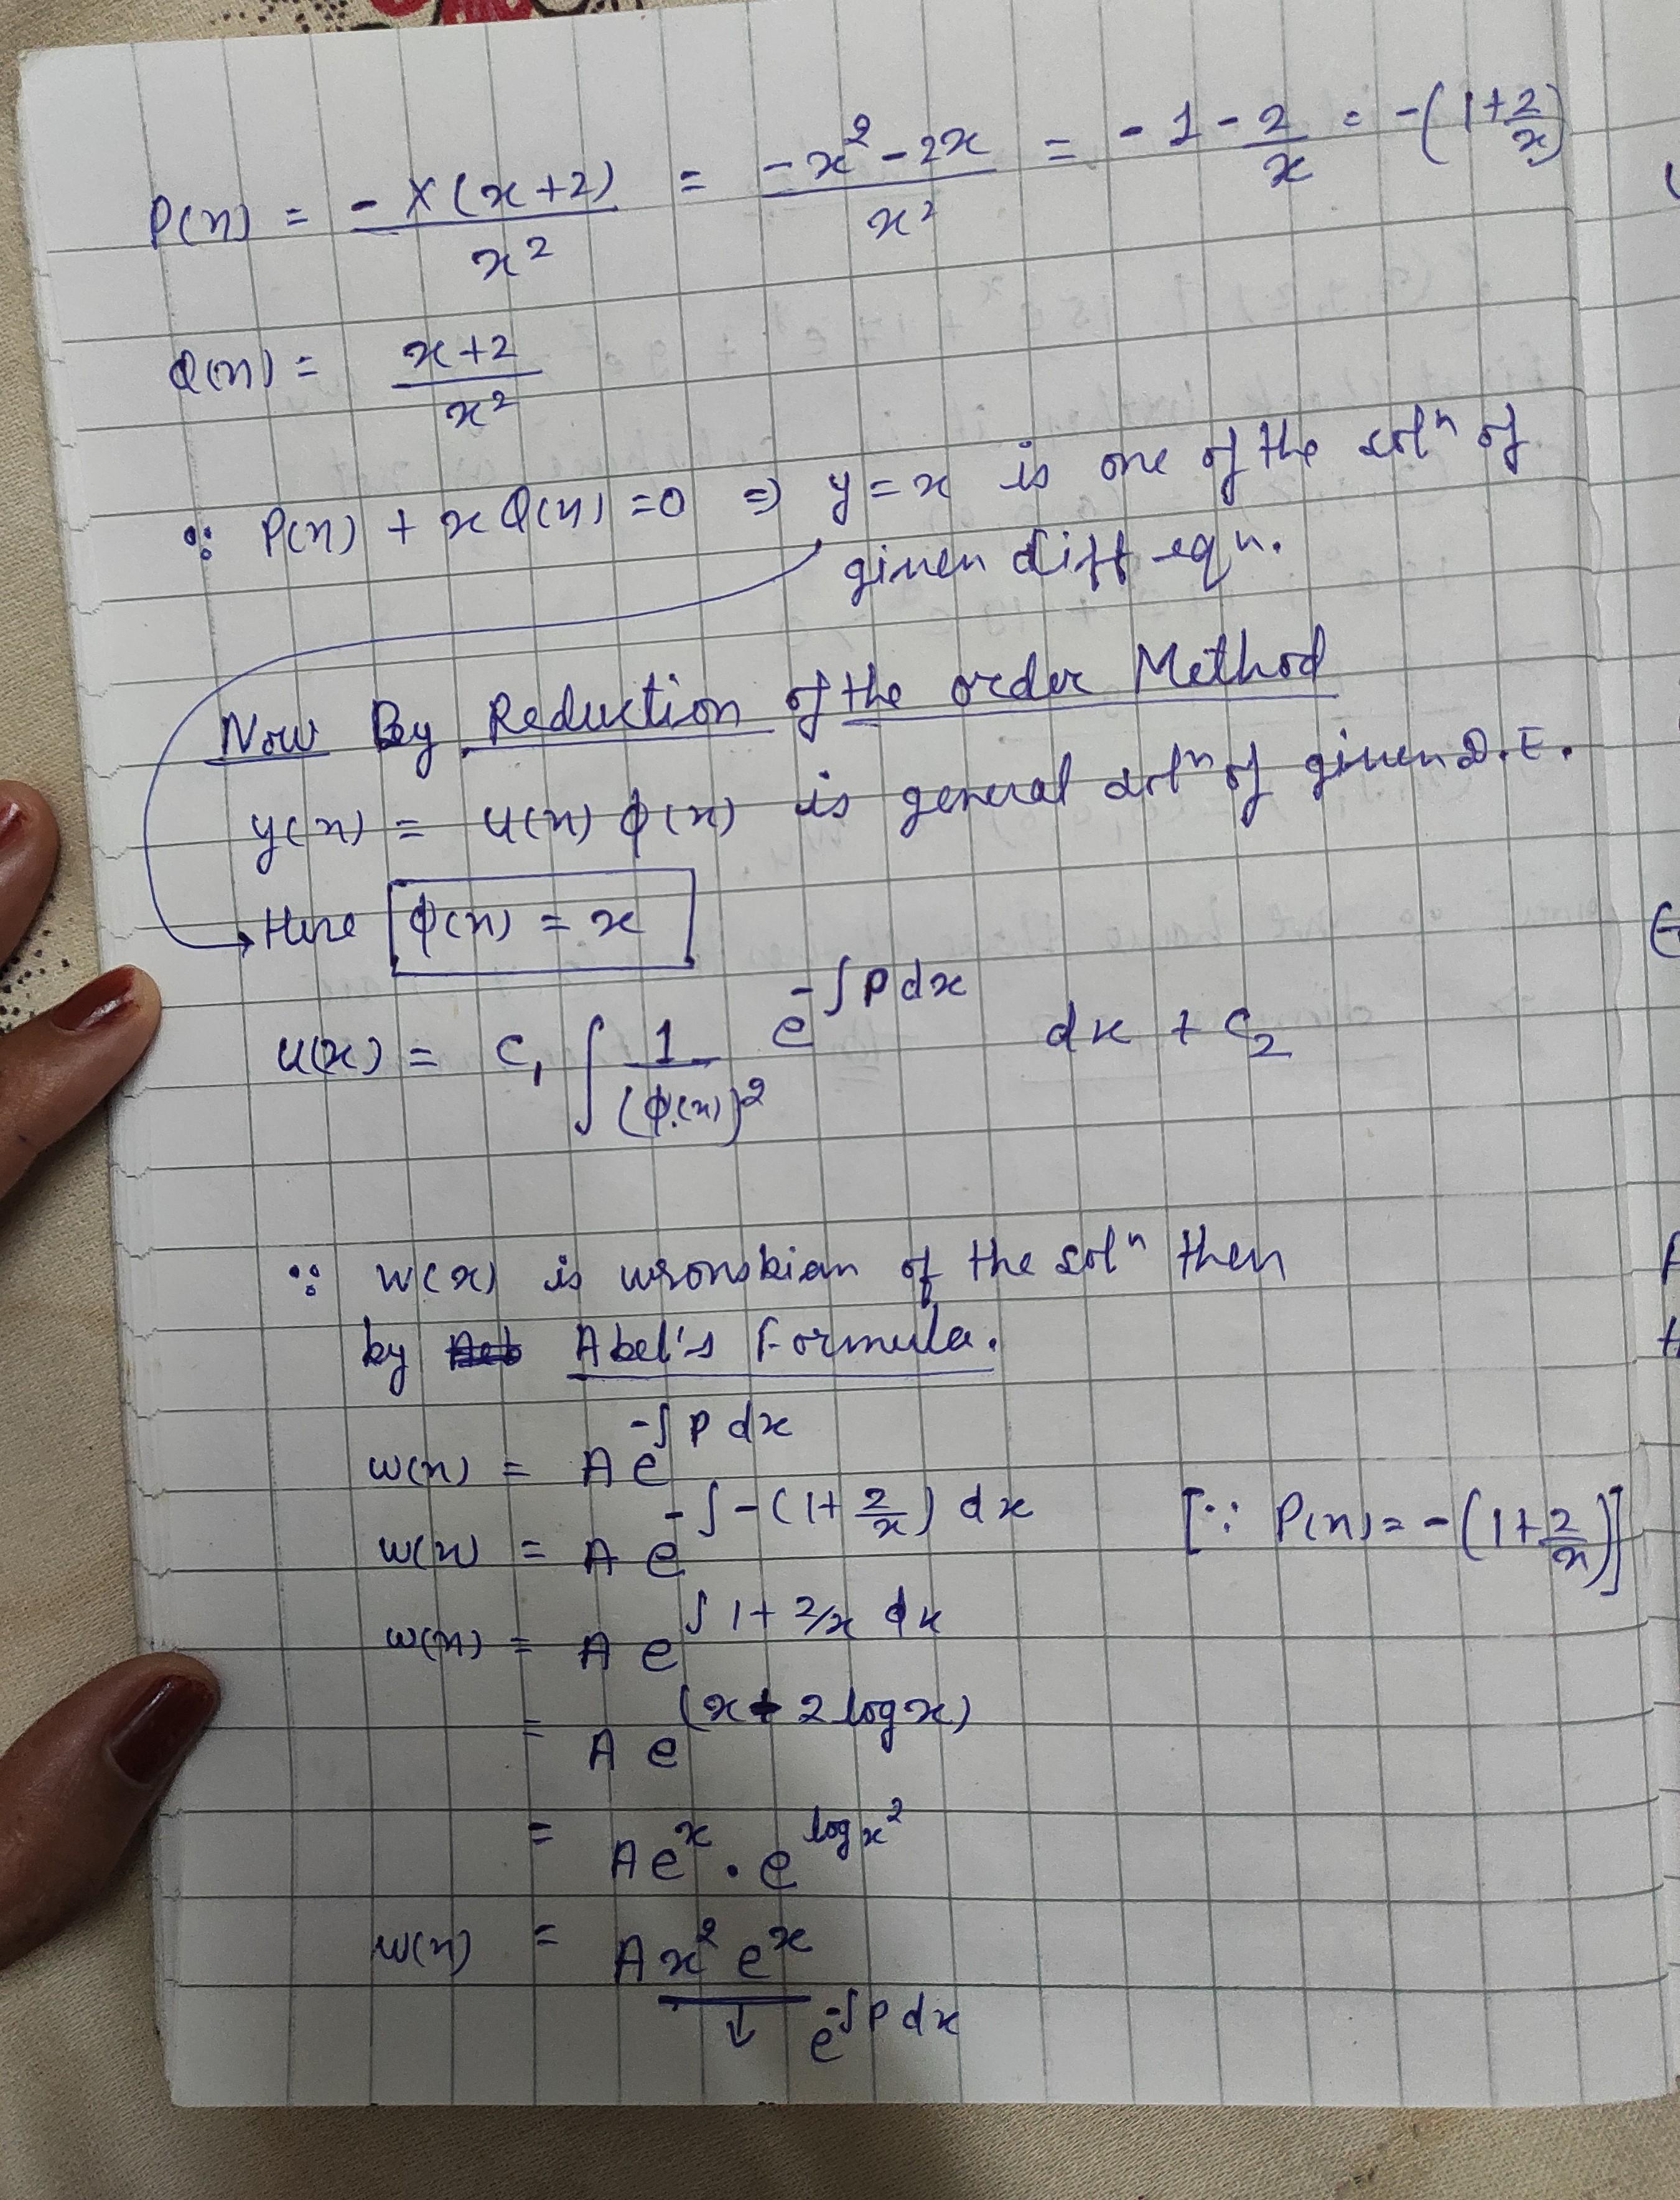 P(x) = -x(x+2)/x² = -x²-2x/x² = -1 - 2/x = -(1+2/x)
Q(x) = x+2/x²
∵ P(x) + xQ(x) = 0 ⇒ y = x is one of the solⁿ of
given diff eqn.
Now By Reduction of the order Method
y(x) = u(x) ϕ(x) is general solⁿ of given D.E.
Here ϕ(x) = x
u(x) = C₁ ∫ 1/(ϕ(x))² e^{-∫P dx} dx + C₂
∵ W(x) is wronskian of the solⁿ then
by Abel's Formula.
W(x) = A e^{-∫P dx}
W(x) = A e^{-∫-(1+2/x) dx} [∵ P(x) = -(1+2/x)]
W(x) = A e^{∫1+2/x dx}
= A e^{(x+2 log x)}
= Ae^x . e^{log x²}
W(x) = A x² e^x
↓ e^{-∫P dx}